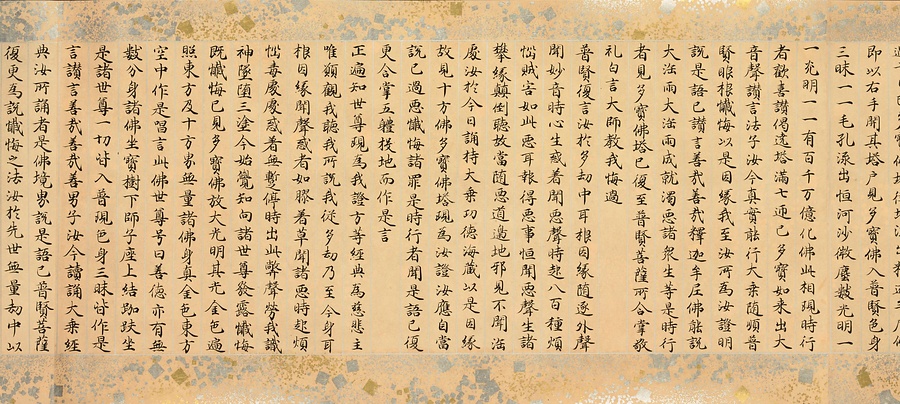 即以右手開其塔戶見多寶佛入普賢色身
三昧一一毛孔流出恒河沙微塵數光明一
一光明一一有百千万億化佛此相現時行
者歡喜讚偈遶塔滿七迊已多寶如來出大
音聲讚言法子汝今真實能行大乘隨順普
賢眼根懺悔以是因緣我至汝所為汝證明
說是語已讚言善哉善哉釋迦牟尼佛能說
大法雨大法雨成就濁惡諸衆生等是時行
者見多寶佛塔已復至普賢菩薩所合掌敬
礼白言大師教我悔過
普賢復言汝於多劫中耳根因緣隨逐外聲
聞妙音時心生惑著聞惡聲時起八百種煩
惱賊害如此惡耳報得惡事恒聞惡聲生諸
攀緣顛倒聽故當墮惡道邊地邪見不聞法
處汝於今日誦持大乘功德海藏以是因緣
故見十方佛多寶佛塔現為汝證汝應自當
說己過惡懺悔諸罪是時行者聞是語已復
更合掌五體投地而作是言
正遍知世尊現為我證方等經典為慈悲主
唯願觀我聽我所說我從多劫乃至今身耳
根因緣聞聲惑著如膠著草聞諸惡時起煩
惱毒處處惑著無暫停時出此弊聲勞我識
神墜墮三塗今始覺知向諸世尊發露懺悔
既懺悔已見多寶佛放大光明其光金色遍
照東方及十方界無量諸佛身真金色東方
空中作是唱言此佛世尊号曰善德亦有無
數分身諸佛坐寶樹下師子座上結跏趺坐
是諸世尊一切皆入普現色身三昧皆作是
言讚言善哉善哉善男子汝今讀誦大乘經
典汝所誦者是佛境界說是語已普賢菩薩
復更為說懺悔之法汝於先世無量劫中以